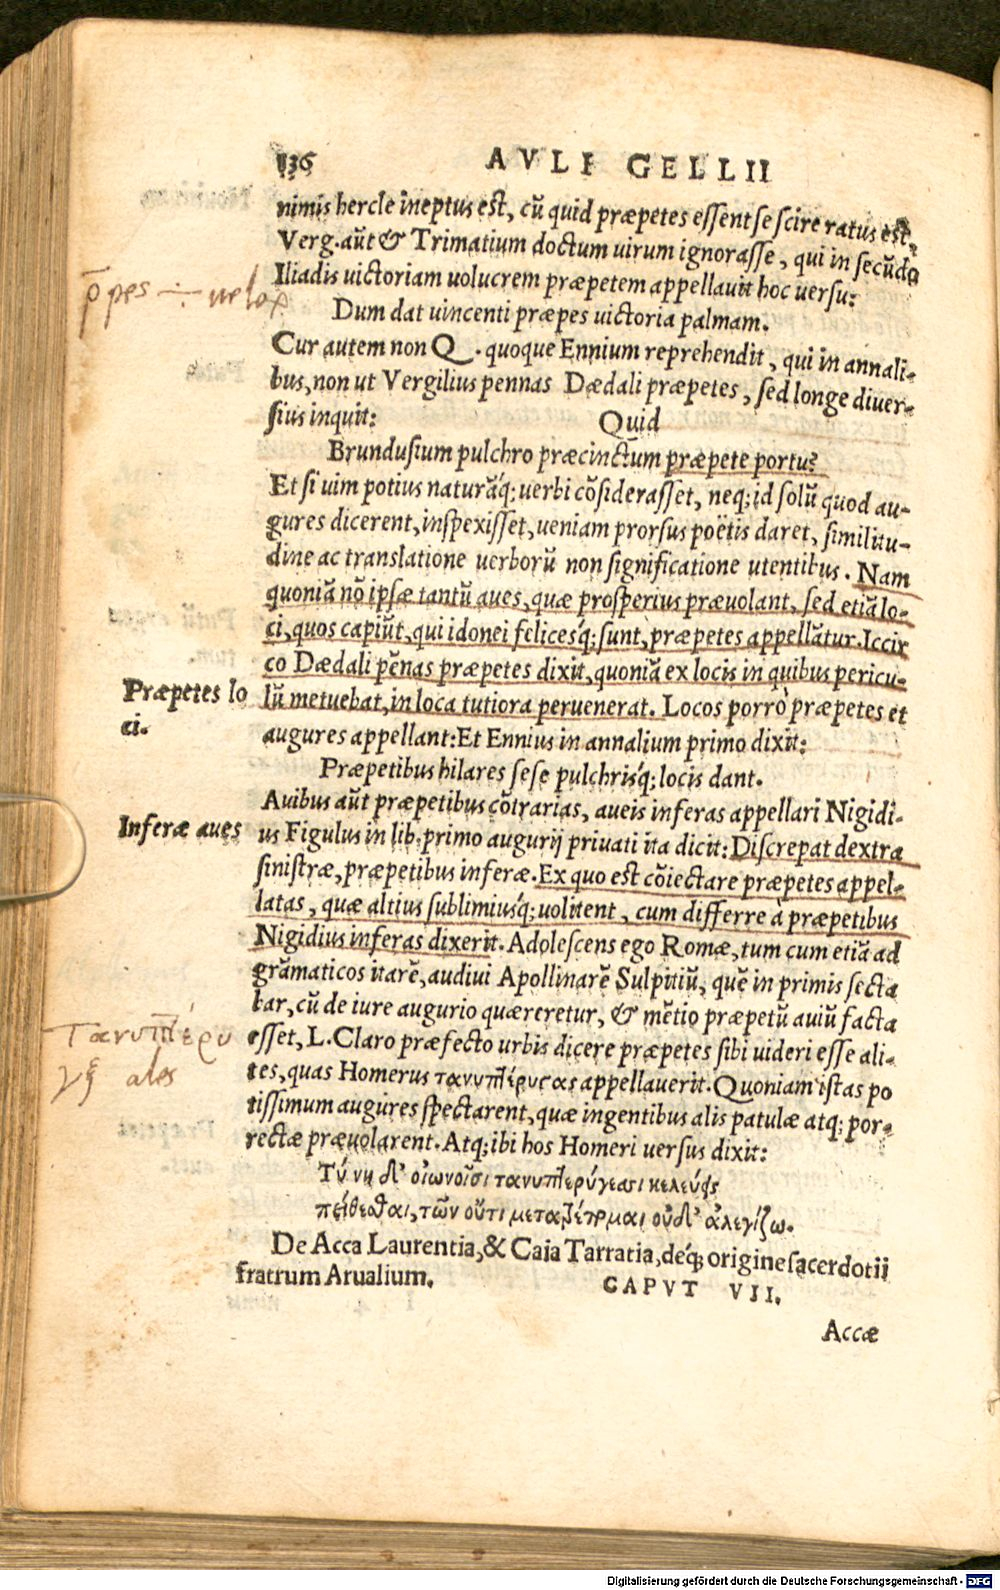 136 AVLI GELLII
nimis hercle ineptus est, cũ quid præpetes essent se scire ratus est.
Verg. aũt & Trimatium doctum uirum ignorasse, qui in secũdo
Iliadis uictoriam uolucrem præpetem appellauit hoc uersu:
p̄pes ÷ uelox
Dum dat uincenti præpes uictoria palmam.
Cur autem non Q. quoque Ennium reprehendit, qui in annali-
bus, non ut Vergilius pennas Dædali præpetes, sed longe diuer-
sius inquit: Quid
Brundusium pulchro præcinctum præpete portu?
Et si uim potius naturáq; uerbi cõsiderasset, neq; id solũ quod au-
gures dicerent, inspexisset, ueniam prorsus poëtis daret, similitu-
dine ac translatione uerborũ non significatione utentibus. Nam
quoniã nõ ipsæ tantũ aues, quæ prosperius præuolant, sed etiã lo-
ci, quos capiũt, qui idonei felicesq́; sunt, præpetes appellãtur. Iccir
co Dædali pẽnas præpetes dixit, quoniã ex locis in quibus pericu-
Præpetes lo
ci.
lũ metuebat, in loca tutiora peruenerat. Locos porrò præpetes et
augures appellant: Et Ennius in annalium primo dixit:
Præpetibus hilares sese pulchrisq́; locis dant.
Auibus aũt præpetibus cõtrarias, aueis inferas appellari Nigidi-
Inferæ aues
us Figulus in lib. primo augurij priuati ita dicit: Discrepat dextra
sinistræ, præpetibus inferæ. Ex quo est cõiectare præpetes appel-
latas, quæ altius sublimiusq́; uolitent, cum differre à præpetibus
Nigidius inferas dixerit. Adolescens ego Romæ, tum cum etiã ad
grãmaticos itarẽ, audiui Apollinarẽ Sulpitiũ, quẽ in primis secta
bar, cũ de iure augurio quæreretur, & mẽtio præpetũ auiũ facta
Τανυπτέρυ
γξ ales
esset, L. Claro præfecto urbis dicere præpetes sibi uideri esse ali-
tes, quas Homerus τανυπτέρυγας appellauerit. Quoniam istas po
tissimum augures spectarent, quæ ingentibus alis patulæ atq; por-
rectæ præuolarent. Atq; ibi hos Homeri uersus dixit:
Τύνη δ' οἰωνοῖσι τανυπτερύγεσσι κελεύεις
πείθεσθαι, τῶν οὔτι μετατρέπομαι οὐδ' ἀλεγίζω.
De Acca Laurentia, & Caia Tarratia, deq́; origine sacerdotii
fratrum Arualium. CAPVT VII.
Accæ
Digitalisierung gefördert durch die Deutsche Forschungsgemeinschaft - DFG